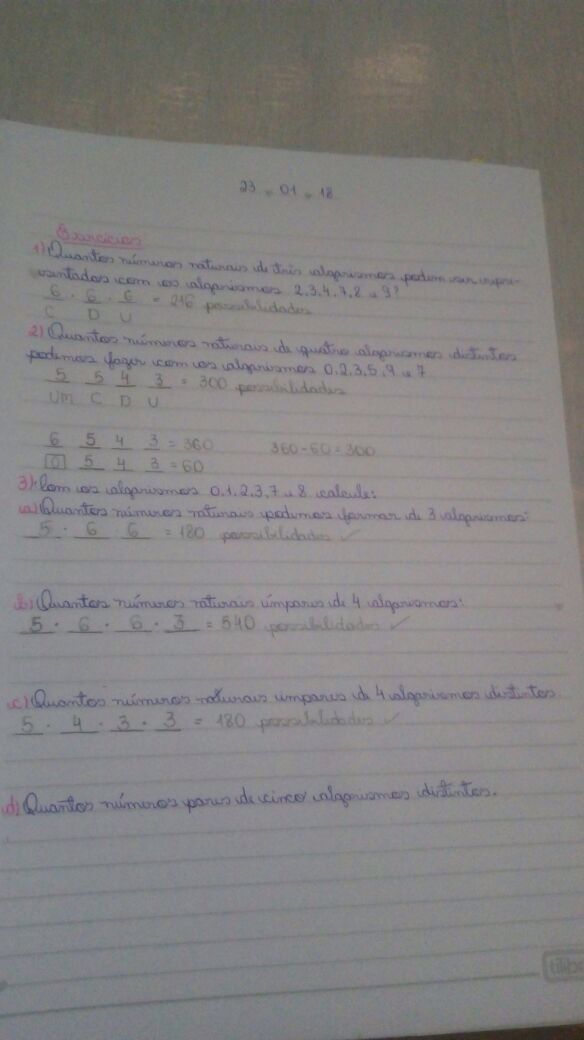 23 . 01 . 18
Exercícios
1) Quantos números naturais de três algarismos podem ser repre-
sentados com os algarismos 2,3,4,7,8 e 9?
6 . 6 . 6 = 216 possibilidades
C D U
2) Quantos números naturais de quatro algarismos distintos
podemos fazer com os algarismos 0,2,3,5,9 e 7
5 5 4 3 = 300 possibilidades
UM C D U
6 5 4 3 = 360 360-60=300
0 5 4 3 = 60
3) Com os algarismos 0,1,2,3,7 e 8 calcule:
a) Quantos números naturais podemos formar de 3 algarismos:
5 . 6 . 6 = 180 possibilidades ✓
b) Quantos números naturais ímpares de 4 algarismos:
5 . 6 . 6 . 3 = 540 possibilidades ✓
c) Quantos números naturais ímpares de 4 algarismos distintos.
5 . 4 . 3 . 3 = 180 possibilidades ✓
d) Quantos números pares de cinco algarismos distintos.